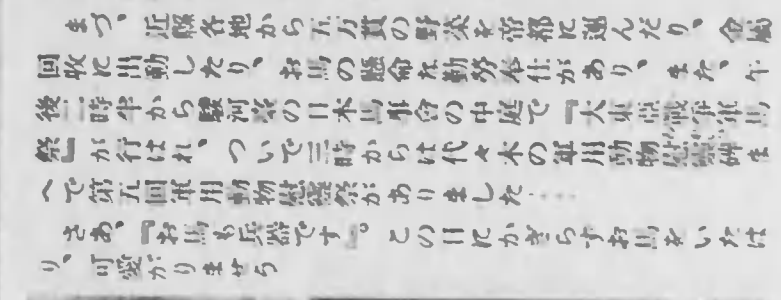 まづ、近縣各地から五万貫の野菜を帝都に運んだり、金属
回收に出動したり、お馬の懸命な勤勞奉仕があり、また、午
後二時半から駿河台の日本馬事会の中庭で『大東亞戰爭軍馬
祭』が行はれ、ついで三時からは代々木の軍用動物慰靈碑ま
へで第五回軍用動物慰靈祭がありました……
さあ、『お馬も兵器です』。この日にかぎらずお馬をいたは
り、可愛がりませう